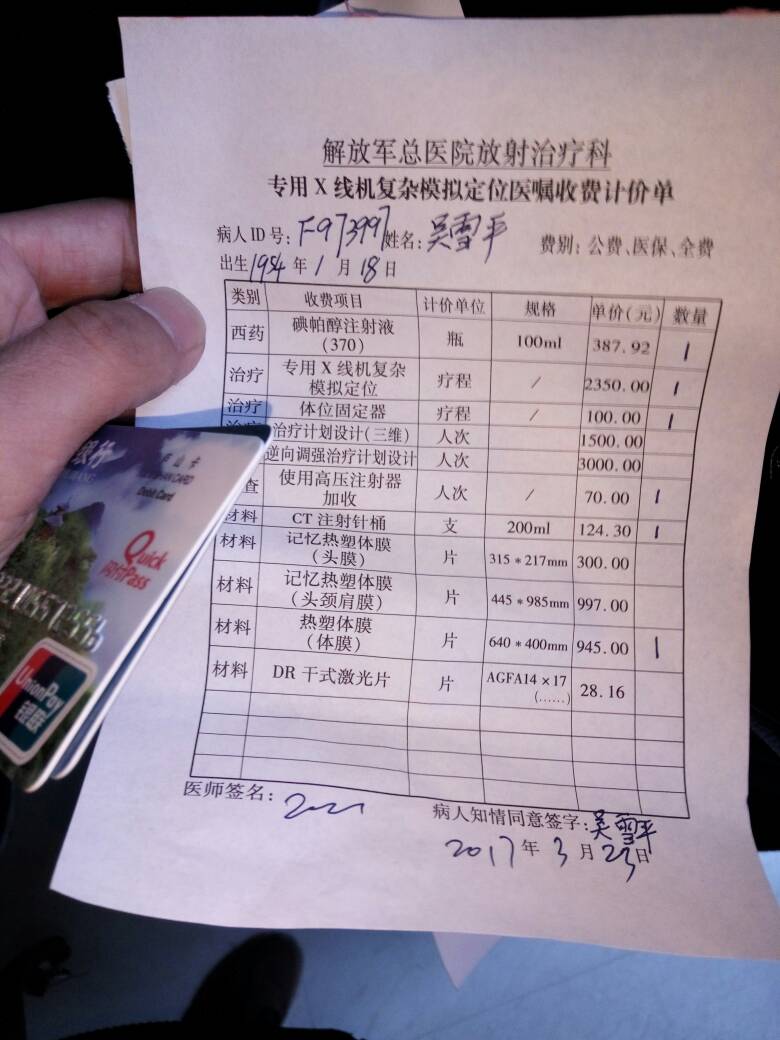 解放军总医院放射治疗科
专用X线机复杂模拟定位医嘱收费计价单
病人ID号: F973997 姓名: 吴雪平 费别: 公费、医保、全费
出生1954年1月18日
类别 收费项目 计价单位 规格 单价(元) 数量
西药 碘帕醇注射液(370) 瓶 100ml 387.92 1
治疗 专用X线机复杂模拟定位 疗程 / 2350.00 1
治疗 体位固定器 疗程 / 100.00 1
治疗计划设计(三维) 人次 1500.00
逆向调强治疗计划设计 人次 3000.00
查 使用高压注射器加收 人次 / 70.00 1
材料 CT注射针桶 支 200ml 124.30 1
材料 记忆热塑体膜(头膜) 片 315*217mm 300.00
材料 记忆热塑体膜(头颈肩膜) 片 445*985mm 997.00
材料 热塑体膜(体膜) 片 640*400mm 945.00 1
材料 DR干式激光片 片 AGFA14×17(……) 28.16
医师签名:
病人知情同意签字: 吴雪平
2017年3月23日
银行
Debit Card
Quick
闪付Pass
UnionPay
银联